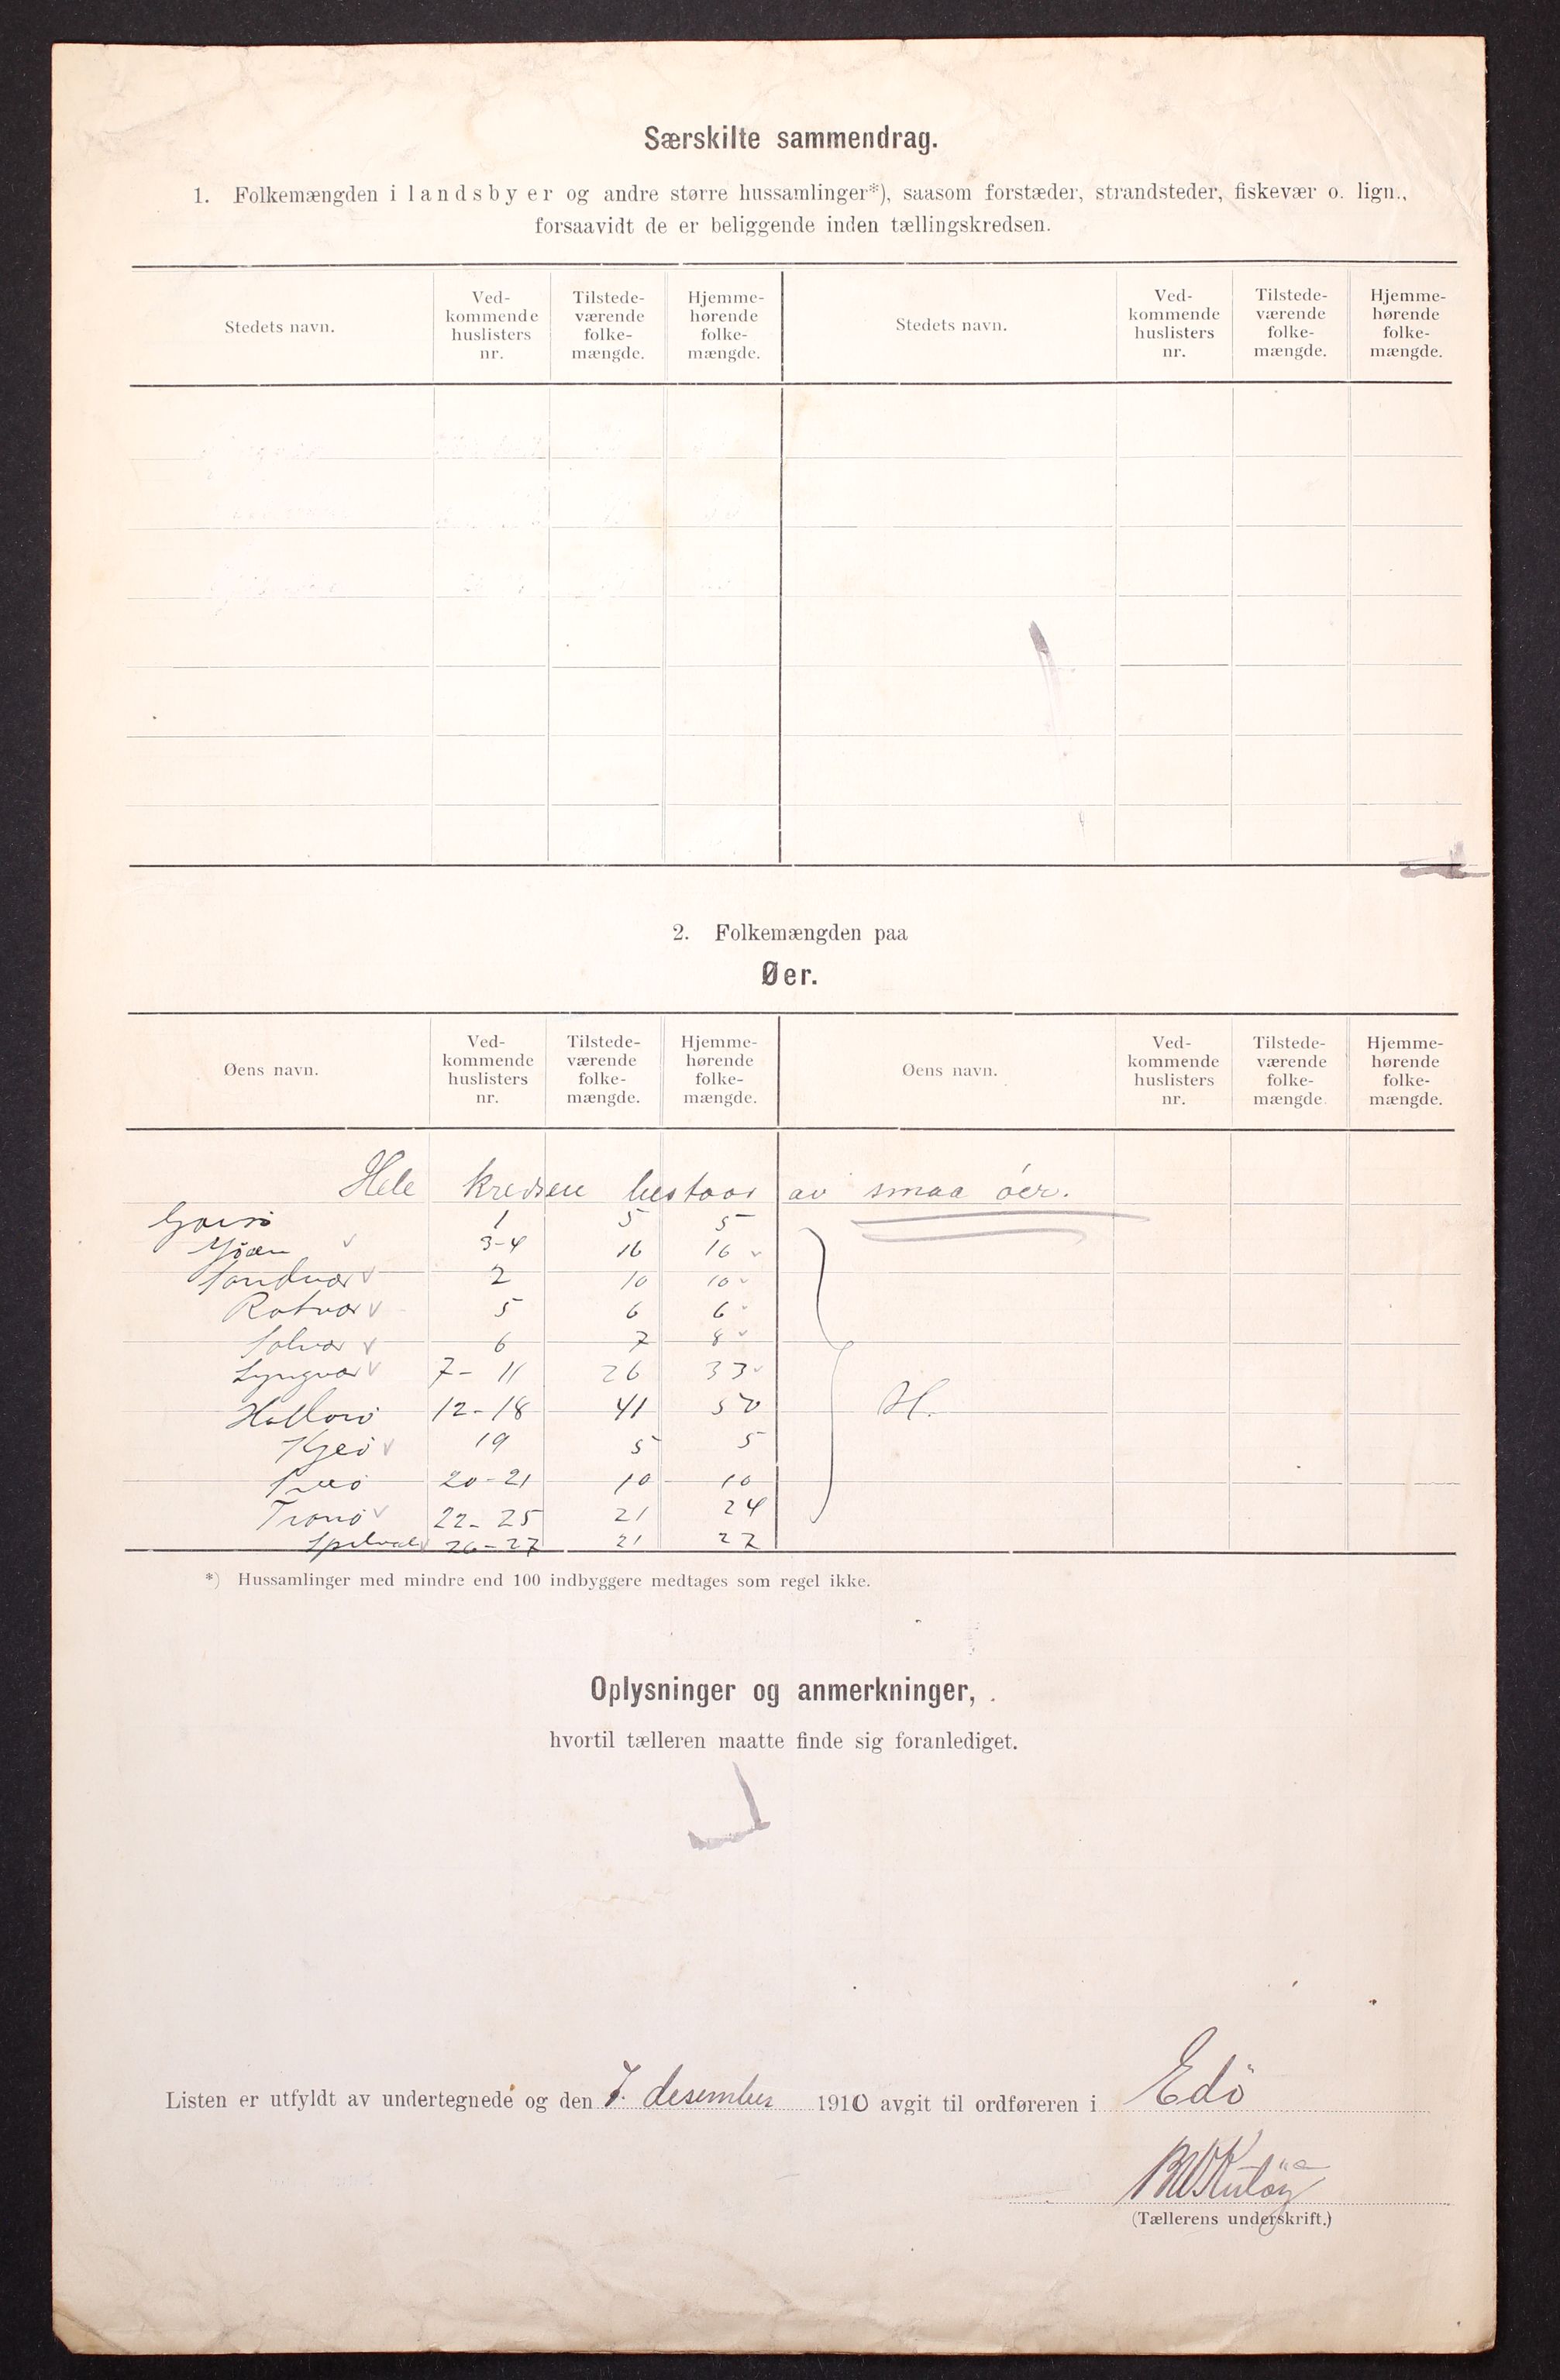 Særskilte sammendrag.
1. Folkemængden i landsbyer og andre større hussamlinger*), saasom forstæder, strandsteder, fiskevær o. lign.,
forsaavidt de er beliggende inden tællingskredsen.
Stedets navn. Ved-kommende huslisters nr. Tilstede-værende folke-mængde. Hjemme-hørende folke-mængde. Stedets navn. Ved-kommende huslisters nr. Tilstede-værende folke-mængde. Hjemme-hørende folke-mængde.
2. Folkemængden paa
Øer.
Øens navn. Ved-kommende huslisters nr. Tilstede-værende folke-mængde. Hjemme-hørende folke-mængde. Øens navn. Ved-kommende huslisters nr. Tilstede-værende folke-mængde. Hjemme-hørende folke-mængde.
Hele kredsen bestaar av smaa öer.
1 5 5
3-4 16 16
Sandvær 2 10 10
Rotvær 5 6 6
Solvær 6 7 8
Lyngvær 7-11 26 33
12-18 41 50
H.
Kjeö 19 5 5
20-21 10 10
Tronö 22-25 21 24
26-27 21 22
*) Hussamlinger med mindre end 100 indbyggere medtages som regel ikke.
Oplysninger og anmerkninger,
hvortil tælleren maatte finde sig foranlediget.
Listen er utfyldt av undertegnede og den 7. desember 1910 avgit til ordføreren i Edö
(Tællerens underskrift.)